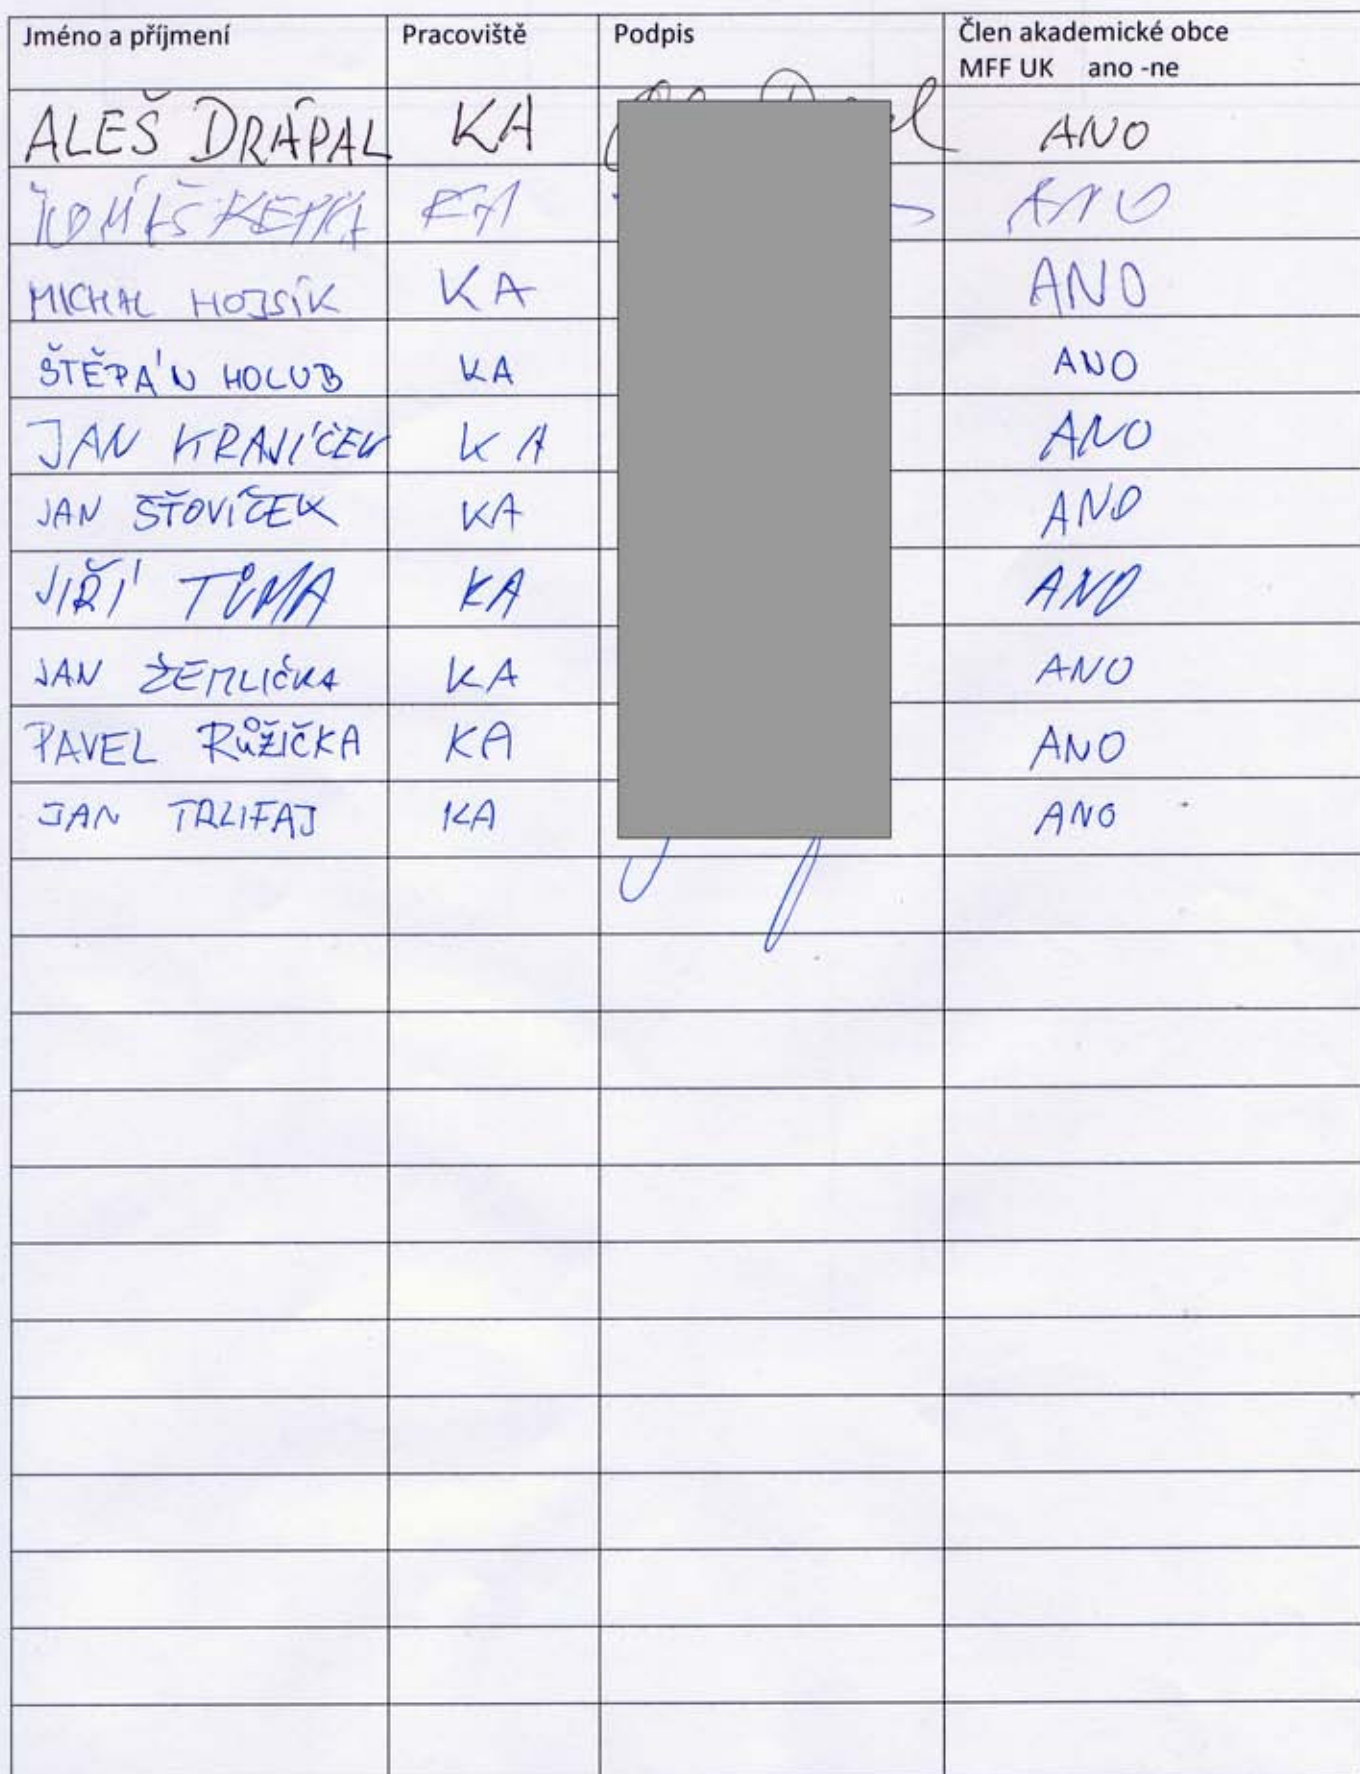 Jméno a příjmení Pracoviště Podpis Člen akademické obce
MFF UK ano -ne
ALEŠ DRÁPAL KA ANO
TOMÁŠ KEPKA KA ANO
MICHAL HOJSÍK KA ANO
ŠTĚPÁN HOLUB KA ANO
JAN KRAJÍČEK KA ANO
JAN ŠŤOVÍČEK KA ANO
JIŘÍ TŮMA KA ANO
JAN ŽEMLIČKA KA ANO
PAVEL RŮŽIČKA KA ANO
JAN TRLIFAJ KA ANO